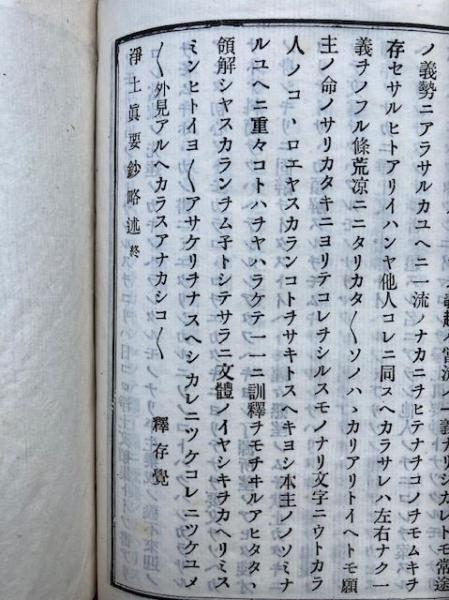 義趣ノ當流ノ一義ナリシカレトモ常途
ノ義勢ニアラサルカユヘニ一流ノナカニチヒテナチコノチモムキチ
存セサルヒトアリイハンヤ他人コレニ同スヘカラサレハ左右ナク一
義チノフル條荒凉ニニタリカタ〱ソノハヽカリアリトイヘトモ願
主ノ命ノサリカタキニヨリテコレチシルスモノナリ文字ニウトカラ
人ノコヽロエヤスカランコトチサキトスヘキヨシ本主ノノソミナ
ルユヘニ重々コトハチヤハラケテ一一ニ訓釋チモチヰルアヒタタヽ
領解シヤスカランチム子トシテサラニ文體ノイヤシキチカヘリミス
ミンヒトイヨ〱アサケリチナスヘシカレニツケコレニツケユメ
〱外見アルヘカラスアナカシコ〱
釋存覺
淨土眞要鈔略述終